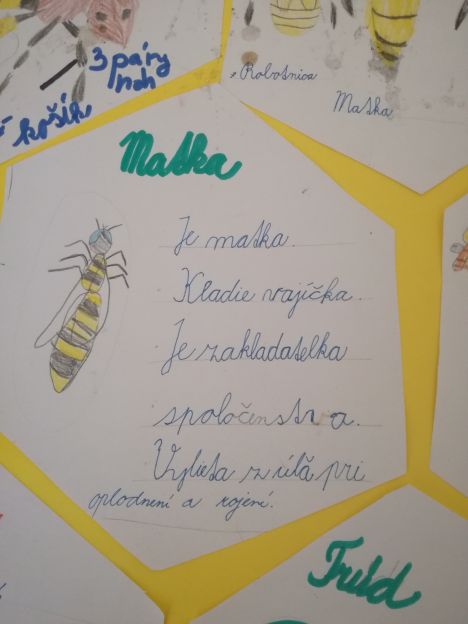 3 páry
nôh
košík
Robotnica
Matka
Matka
Je matka.
Kladie vajíčka.
Je zakladatelka
spoločenstva.
Vylieta z úľa pri
oplodnení a rojení.
Trúd